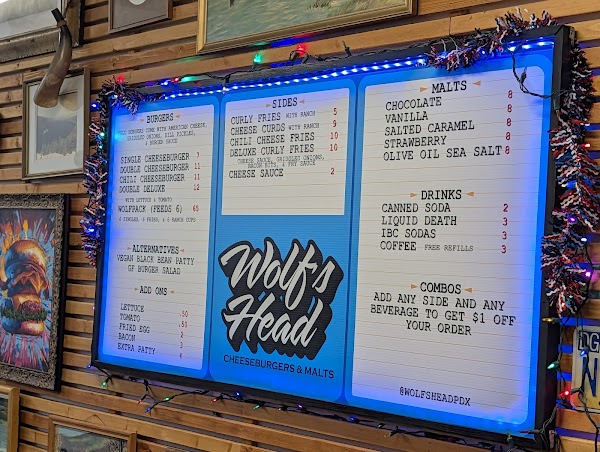 BURGERS
ALL BURGERS COME WITH AMERICAN CHEESE,
GRIDDLED ONIONS, DILL PICKLES,
& BURGER SAUCE
SINGLE CHEESEBURGER 7
DOUBLE CHEESEBURGER 11
CHILI CHEESEBURGER 11
DOUBLE DELUXE 12
WITH LETTUCE & TOMATO
WOLFPACK (FEEDS 6) 65
6 SINGLES, 6 FRIES, & 6 RANCH CUPS
ALTERNATIVES
VEGAN BLACK BEAN PATTY
GF BURGER SALAD
ADD ONS
LETTUCE .50
TOMATO .50
FRIED EGG 2
BACON 2
EXTRA PATTY 4
SIDES
CURLY FRIES WITH RANCH 5
CHEESE CURDS WITH RANCH 9
CHILI CHEESE FRIES 10
DELUXE CURLY FRIES 10
CHEESE SAUCE, GRIDDLED ONIONS,
BACON BITS, & FRY SAUCE
CHEESE SAUCE 2
Wolf's
Head
CHEESEBURGERS & MALTS
MALTS
CHOCOLATE 8
VANILLA 8
SALTED CARAMEL 8
STRAWBERRY 8
OLIVE OIL SEA SALT 8
DRINKS
CANNED SODA 2
LIQUID DEATH 3
IBC SODAS 3
COFFEE FREE REFILLS 3
COMBOS
ADD ANY SIDE AND ANY
BEVERAGE TO GET $1 OFF
YOUR ORDER
@WOLFSHEADPDX